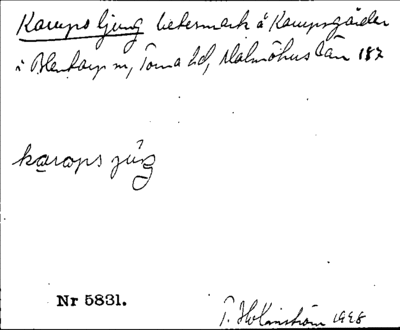 Karups ljung betesmark å Karupsgården
i Blentarp sn, Torna hd, Malmöhus län 187
karops jüŋ
Nr 5831.
T. Holmström 1928